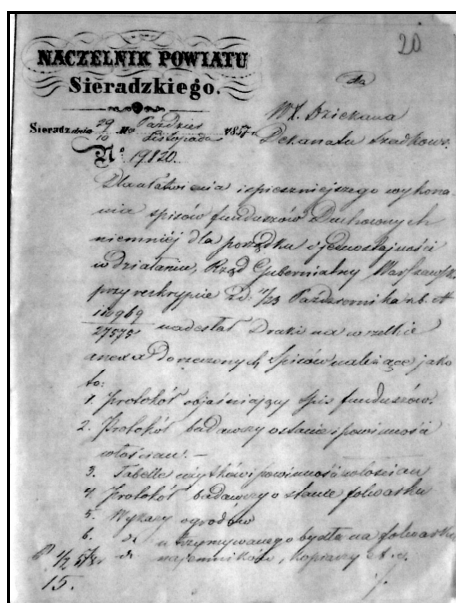 20
NACZELNIK POWIATU
Sieradzkiego.
do
WX. Dziekana
Sieradz dnia 29/10 Paźdz. Listopada 1857 r.
Dekanatu Szadkow.
No 19120.
Dla ułatwienia i spieszniejszego wykona
nia spisów funduszów Duchownych
niemniéj dla porządku i jednostajności
w działaniu, Rząd Gubernialny Warszawski
przy reskrypcie z d. 11/23 Października r. b. No
27575 nadesłał Druki na wszelkie
anexa do rzeczonych Spisów należące jako
to:
1. Protokół objaśniający spis funduszów.
2. Protokół badawczy o stanie i powinności
włościan. —
3. Tabelle użytków i powinności włościan
4. Protokół badawczy o stanie folwarku
5. Wykazy ogrodów
6. do utrzymywanego bydła na folwarku
do najemników, kopczarzy
15.